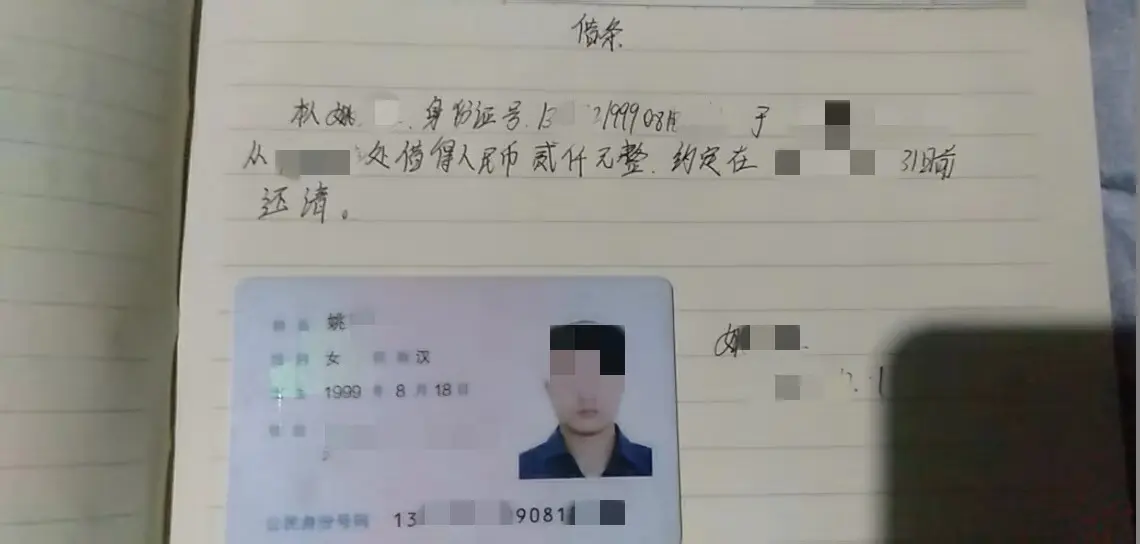 借条
本人姚 身份证号 13 21999081 于
从 处借得人民币贰仟元整.约定在 31日前
还清。
姓名 姚
性别 女 民族 汉
出生 1999 年 8 月 18 日
住址
公民身份号码 13 9081
姚